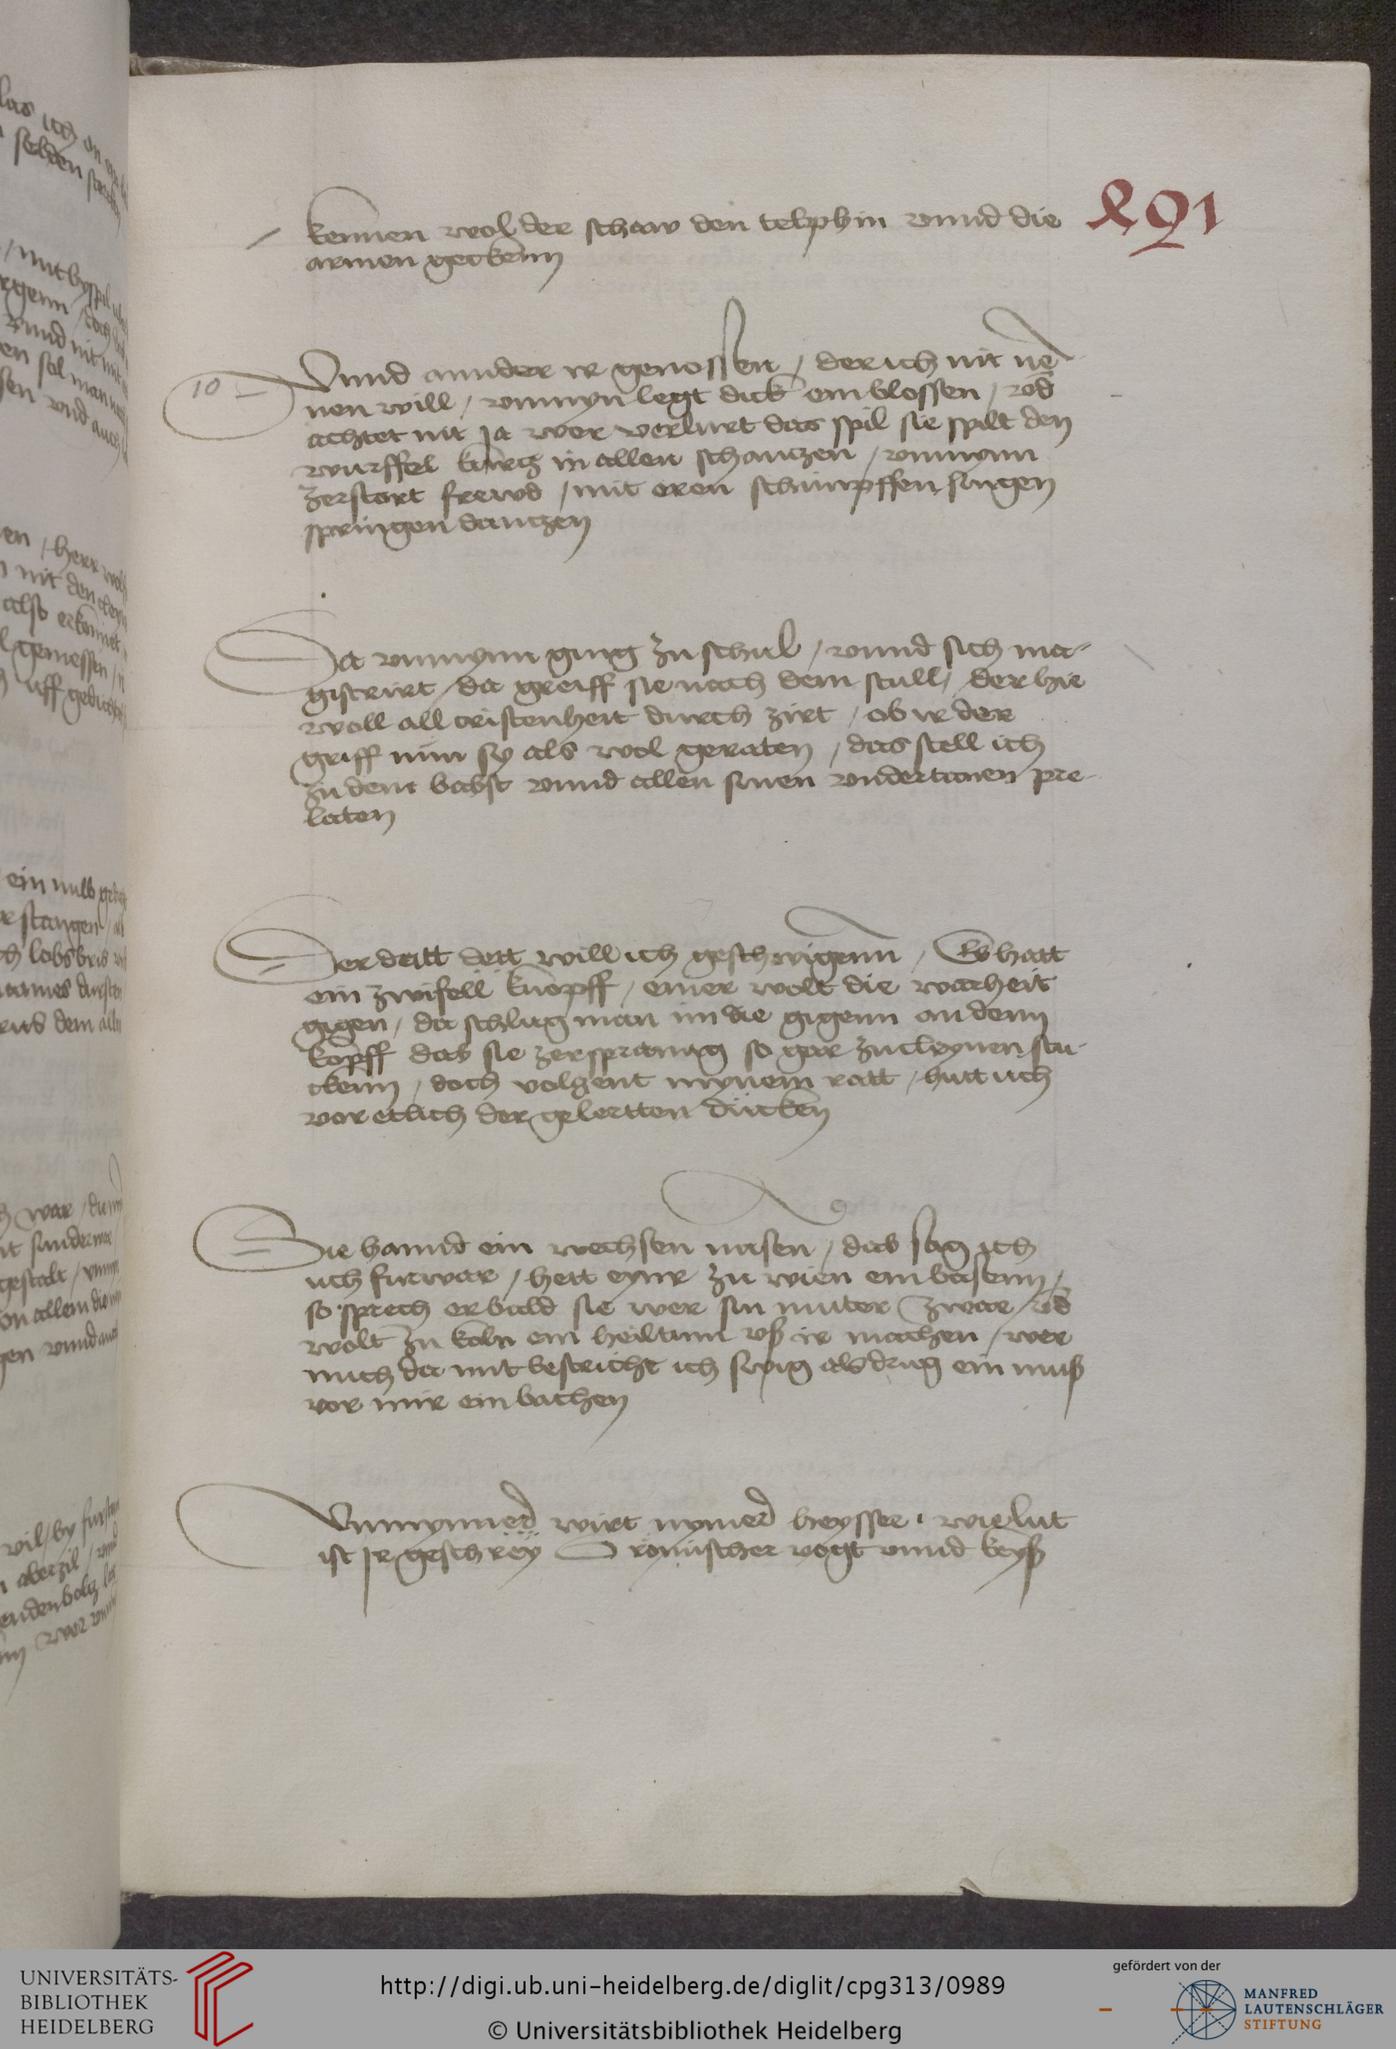 491
kennen wol der schaw den telphin vnnd die
armen geckenn
10
Vnnd annder ir genossen / der ich nit ne
nen will / vnmyn legt dick ein blossen / vnd
achtet nit ja wer verlurt das spil sie spilt den
wurffel kurtz in allen schantzen / vnmynn
zerstort frewd / mit eren schimpffen singen
springen dantzen
Da vnmynn ging zu schul / vnnd sich ma-
gistrirt / da greiff sie nach dem stull / der hie
woll all cristenheit durch zirt / ob ir der
griff nun sy als wol geraten / das stell ich
zu dem babst vnnd allen sinen vndertanen pre-
laten
Der dritt dett will ich geschwigenn / Es hatt
ein zwifell knopff / einer wolt die warheit
gigen / da schlug man im die gigenn an denn
kopff das sie zersprang so gar zu cleynen stu-
ckenn / doch volgent mynem ratt / hutt uch
vor etlich der gelertten dücken
Sie hannd ein wechsen nasen / das sag ich
uch furwar / hett eynr zu wien ein basenn /
so sprech er bald sie wer sin muter zwar / vnd
wolt zu koln ein heiltum vß ir machen / wer
mich da mit bestricht ich swig als drug ein muß
vor mir ein bachen
Vnmynnerd wirt nymerd heysser / wie lut
ist jr geschrey O römischer vogt vnnd keyß
UNIVERSITÄTS-
BIBLIOTHEK
HEIDELBERG
http://digi.ub.uni-heidelberg.de/diglit/cpg313/0989
© Universitätsbibliothek Heidelberg
gefördert von der
MANFRED
LAUTENSCHLÄGER
STIFTUNG